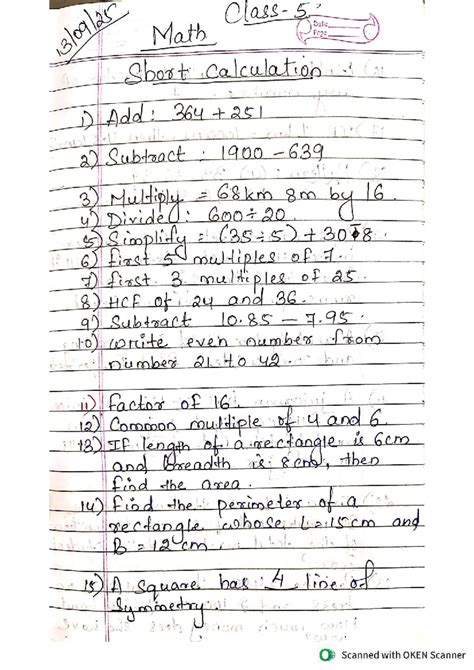 13/09/25
Class-5
Date
Page
Math
Short Calculation
1) Add: 364 + 251
2) Subtract : 1900 - 639
3) Multiply = 68km 8m by 16.
4) Divide : 600 ÷ 20.
5) Simplify = (35 ÷ 5) + 30 8.
6) first 5 multiples of 7.
7) first 3 multiples of 25.
8) HCF of 24 and 36.
9) Subtract 10.85 - 7.95.
10) write even number from
number 21 to 42.
11) factor of 16.
12) Common multiple of 4 and 6.
13) If length of a rectangle is 6cm
and breadth is 8cm, then
find the area.
14) find the perimeter of a
rectangle whose L = 15cm and
B = 12cm.
15) A square has 4 line of
Symmetry.
Scanned with OKEN Scanner